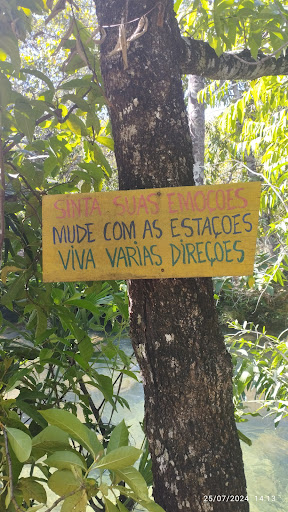 SINTA SUAS EMOCOES
MUDE COM AS ESTAÇOES
VIVA VARIAS DIREÇÕES
25/07/2024 14:13